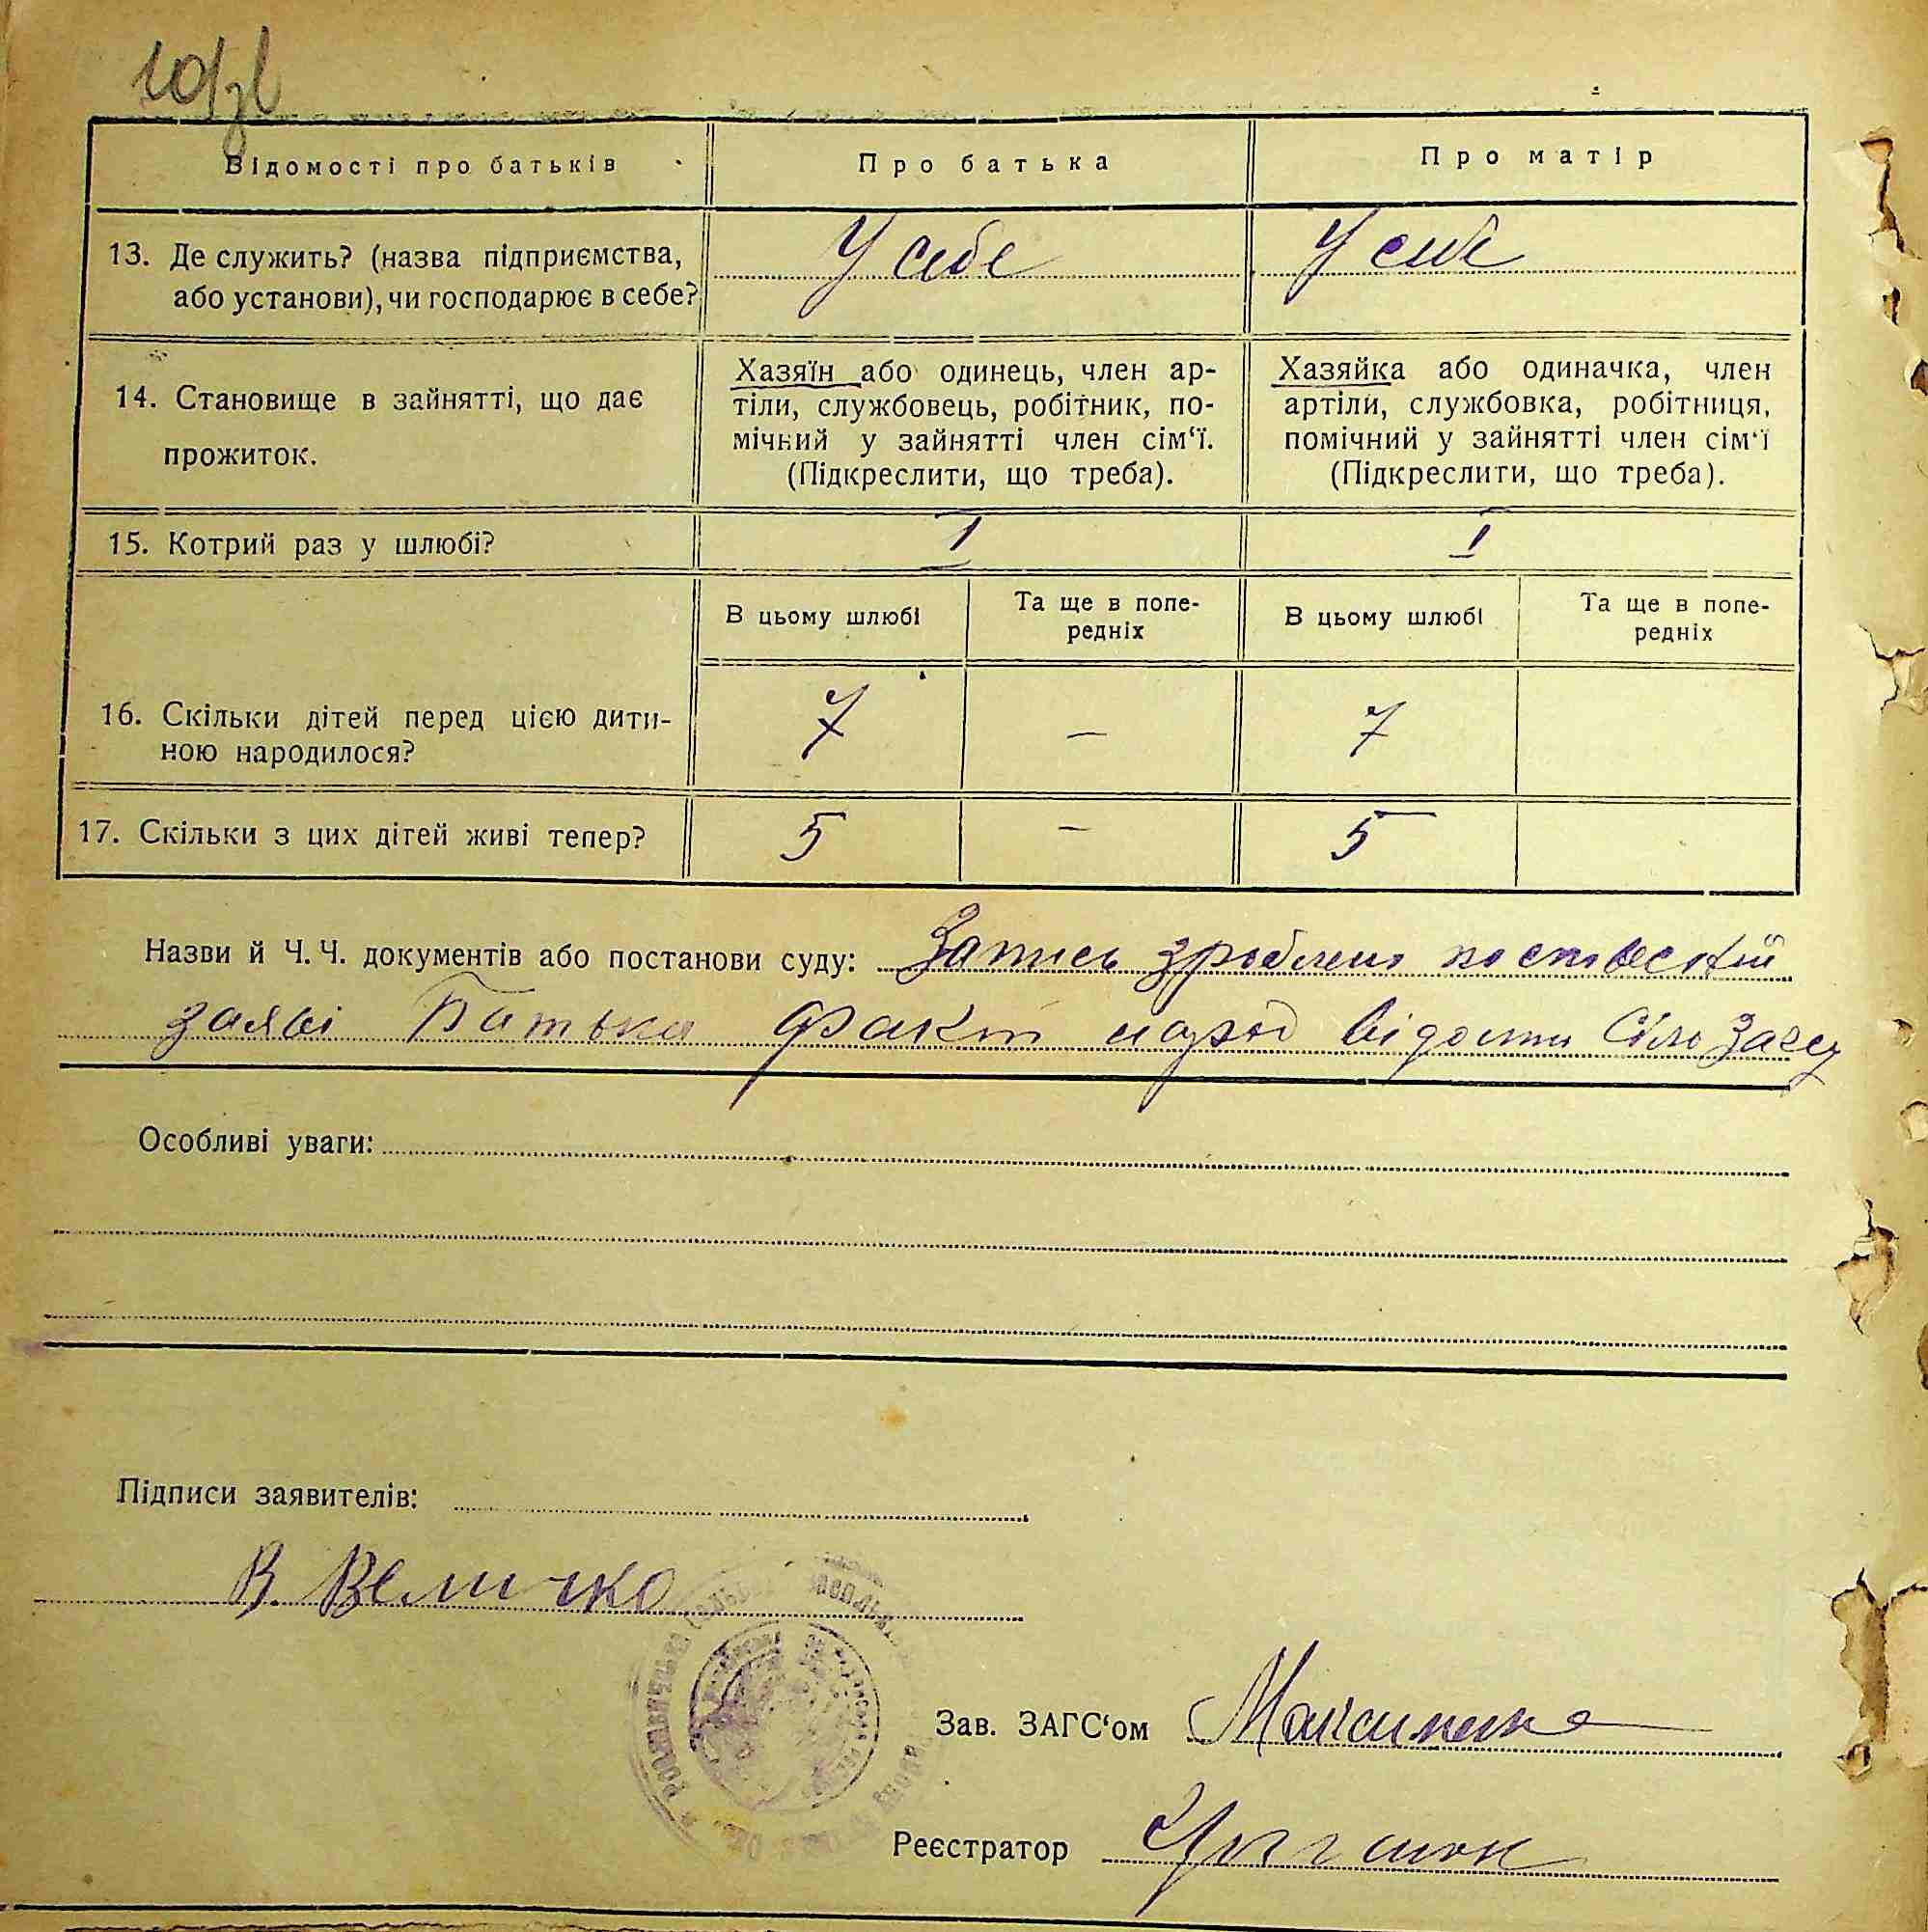 Відомості про батьків
Про батька
Про матір
13. Де служить? (назва підприємства,
або установи), чи господарює в себе?
У себе
У себе
14. Становище в зайнятті, що дає
прожиток.
Хазяїн або одинець, член ар-
тіли, службовець, робітник, по-
мічний у зайнятті член сім'ї.
(Підкреслити, що треба).
Хазяйка або одиначка, член
артіли, службовка, робітниця,
помічний у зайнятті член сім'ї
(Підкреслити, що треба).
15. Котрий раз у шлюбі?
I
I
В цьому шлюбі
Та ще в попе-
редніх
В цьому шлюбі
Та ще в попе-
редніх
16. Скільки дітей перед цією дити-
ною народилося?
7
—
7
17. Скільки з цих дітей живі тепер?
5
—
5
Назви й Ч. Ч. документів або постанови суду: Запись зроблено по
заяві Батька факт народ відоми Сіль Загсу
Особливі уваги:
Підписи заявителів:
В. Величко
Зав. ЗАГС'ом
Реєстратор